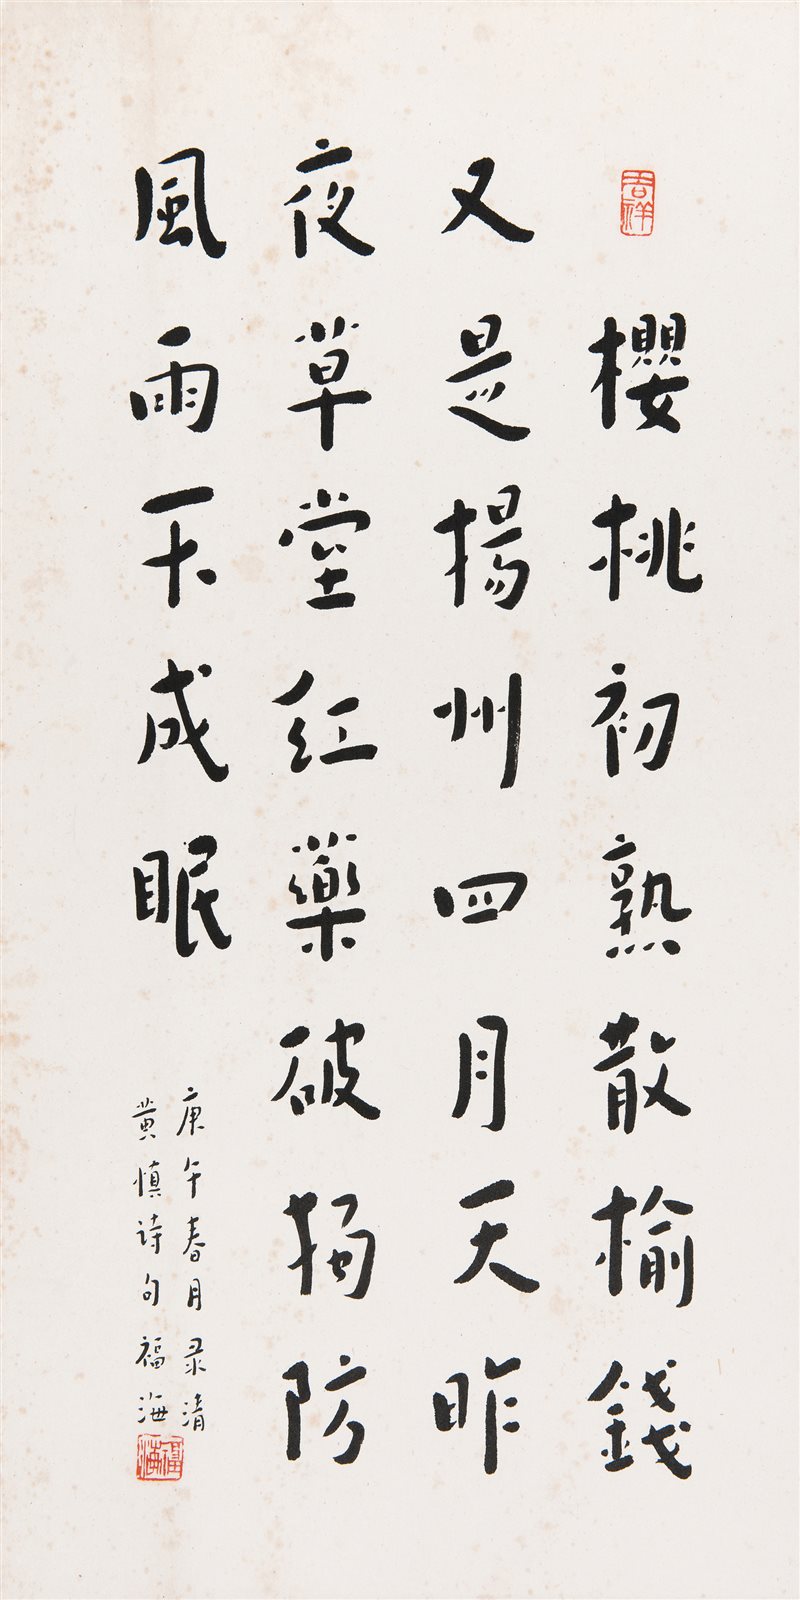 吉祥
櫻桃初熟散榆錢
又是揚州四月天昨
夜草堂紅藥破獨防
風雨不成眠
庚午春月录清
黄慎诗句福海
福海